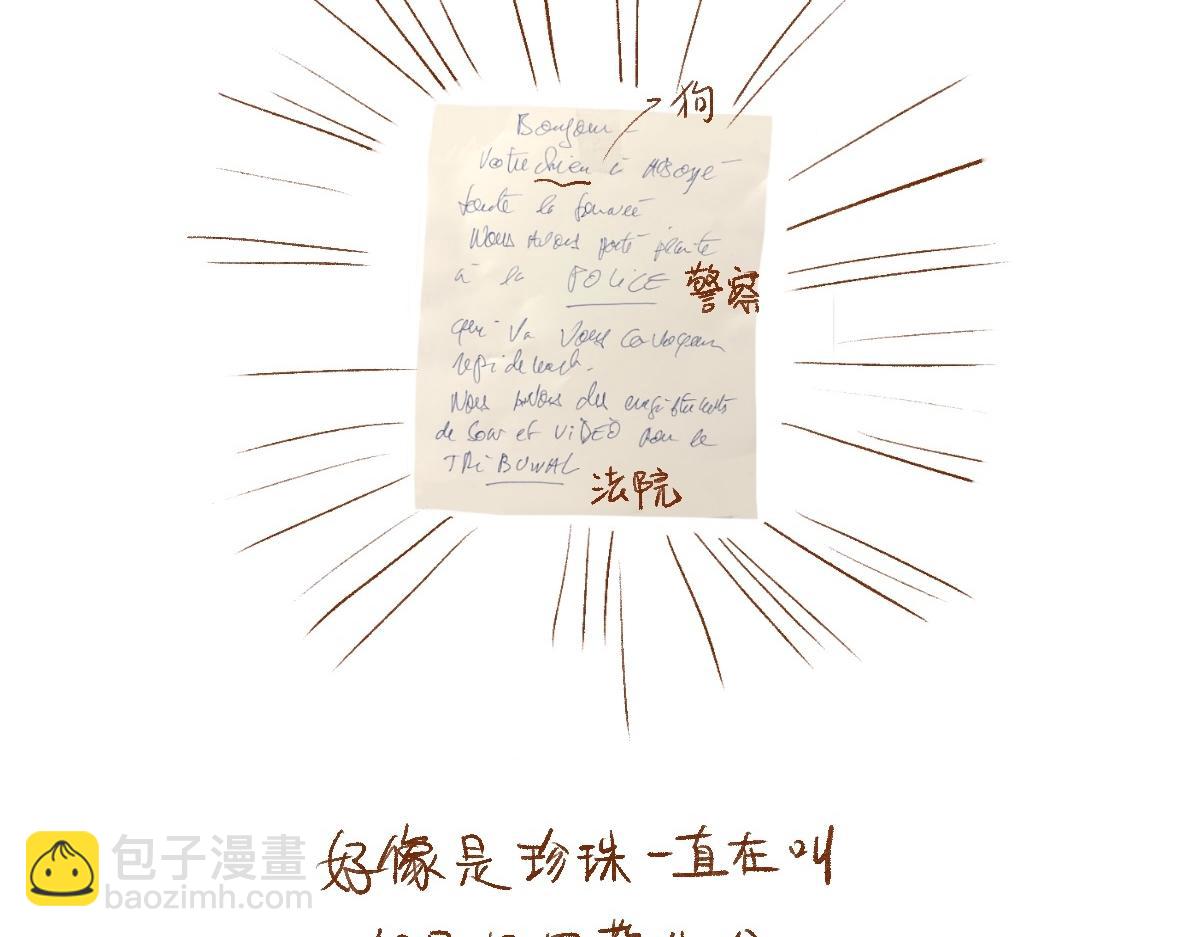 狗
Bonjour -
Votre chien à ABoyé
toute la journée
Nous Avons porté plainte
à la POLiCE
警察
qui va Vous Convoquer
rapidement.
Nous Avons des enregistrements
de Son et ViDEO pour le
TRiBUNAL
法院
好像是珍珠一直在叫
包子漫畫
baozimh.com